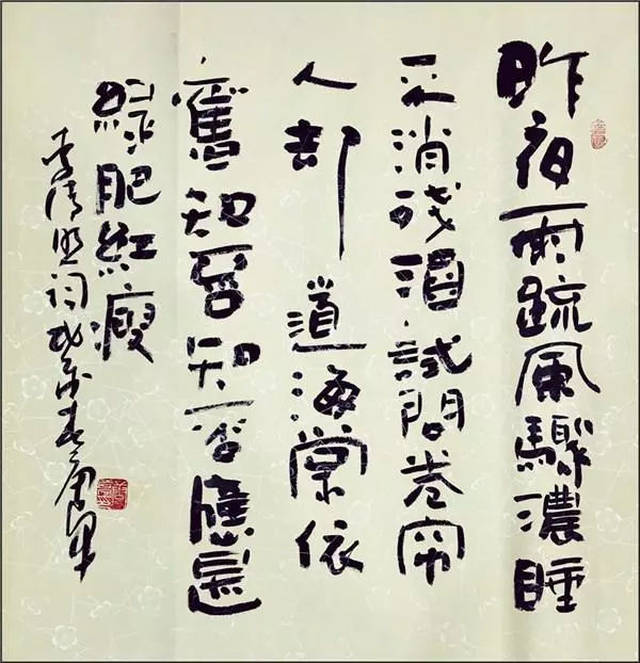 昨夜雨疏風驟濃睡
不消残酒試問卷帘
人却道海棠依
舊知否知否應是
綠肥紅瘦
李清照词